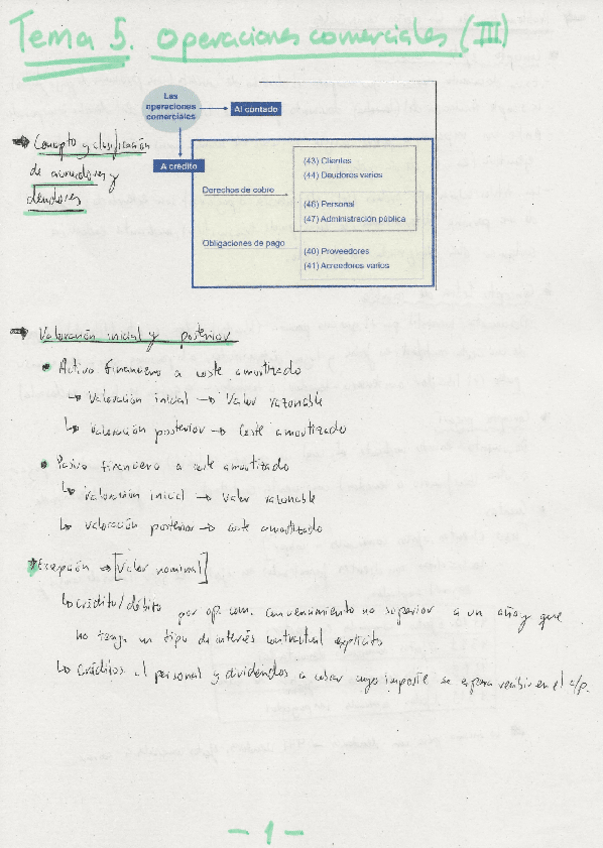 Tema 5. Operaciones comerciales (III)
Las
operaciones
comerciales
Al contado
A crédito
Derechos de cobro
(43) Clientes
(44) Deudores varios
(46) Personal
(47) Administración pública
Obligaciones de pago
(40) Proveedores
(41) Acreedores varios
Concepto y clasificación
de acreedores y
deudores
Valoración inicial y posterior
Activo financiero a coste amortizado
Valoración inicial → Valor razonable
Valoración posterior → Coste amortizado
Pasivo financiero a coste amortizado
Valoración inicial → Valor razonable
Valoración posterior → coste amortizado
Excepción → [Valor nominal]
Crédito/débito por op. com. con vencimiento no superior a un año y que
no tenga un tipo de interés contractual explícito
Créditos al personal y dividendos a cobrar cuyo importe se espera recibir en el c/p.
- 1 -